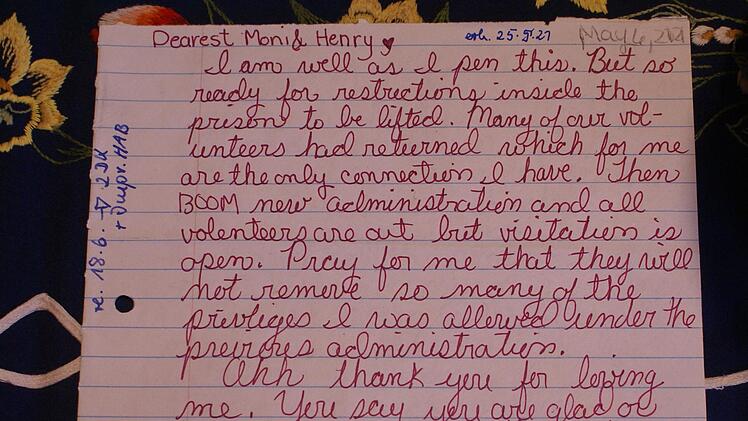 Dearest Moni & Henry ♥
erh. 25.5.21
May 6, 2021
I am well as I pen this. But so
ready for restrictions inside the
prison to be lifted. Many of our vol-
unteers had returned which for me
are the only connection I have. Then
BOOM new administration and all
volenteers are out but visitation is
open. Pray for me that they will
not remove so many of the
privliges I was allowed under the
previous administration.
Ahh thank you for loving
me. You say you are glad
18.6.
2 DK